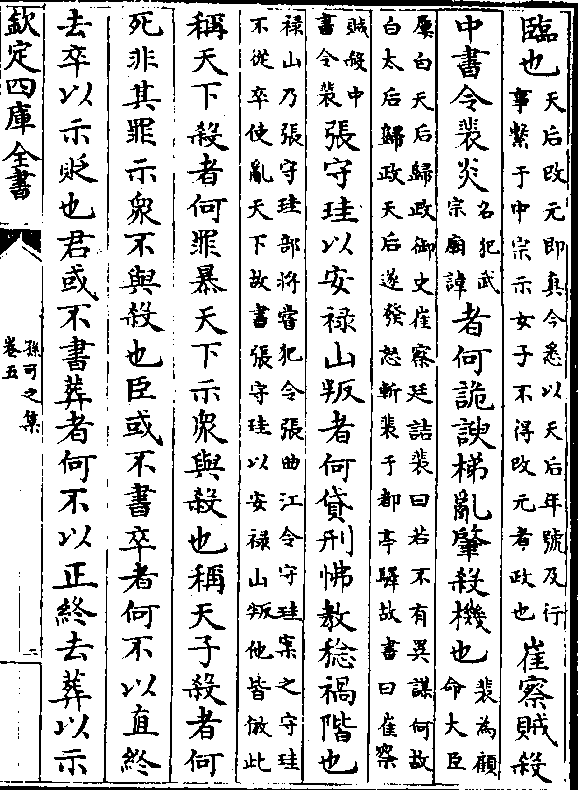 臨也天后改元即真今悉以天后年號及行
事繫于中宗示女子不得改元者政也崔察賊殺
中書令裴炎名犯武
宗廟諱者何詭諛梯亂肇殺機也裴為顧
命大臣
屢白天后歸政御史崔察廷詰裴曰若不有異謀何故
白太后歸政天后遂發怒斬裴于都亭驛故書曰崔察
賊殺中
書令裴張守珪以安禄山叛者何貸刑怫教稔禍階也
禄山乃張守珪部將嘗犯令張曲江令守珪案之守珪
不從卒使亂天下故書張守珪以安禄山叛他皆倣此
稱天下殺者何罪暴天下示衆與殺也稱天子殺者何
死非其罪示衆不與殺也臣或不書卒者何不以直終
去卒以示貶也君或不書葬者何不以正終去葬以示
欽定四庫全書
孫可之集
卷五